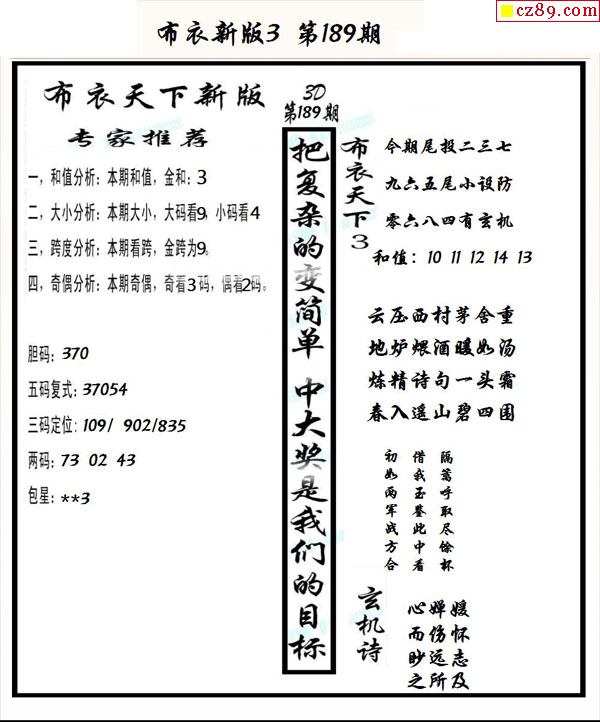 cz89.com
布衣新版3 第189期
布衣天下新版
专家推荐
一，和值分析：本期和值，金和：3
二，大小分析：本期大小，大码看9，小码看4
三，跨度分析：本期看跨，金跨为9。
四，奇偶分析：本期奇偶，奇看3码，偶看2码。
胆码：370
五码复式：37054
三码定位：109/ 902/835
两码：73 02 43
包星：**3
3D
第189期
把复杂的变简单 中大奖是我们的目标
布衣天下3
今期尾投二三七
九六五尾小设防
零六八四有玄机
和值：10 11 12 14 13
云压西村茅舍重
地炉煨酒暖如汤
炼精诗句一头霜
春入遥山碧四围
隔篱呼取尽馀杯
借我玉鉴此中看
初如两军战方合
玄机诗
心婵媛
而伤怀
眇远志
之所及